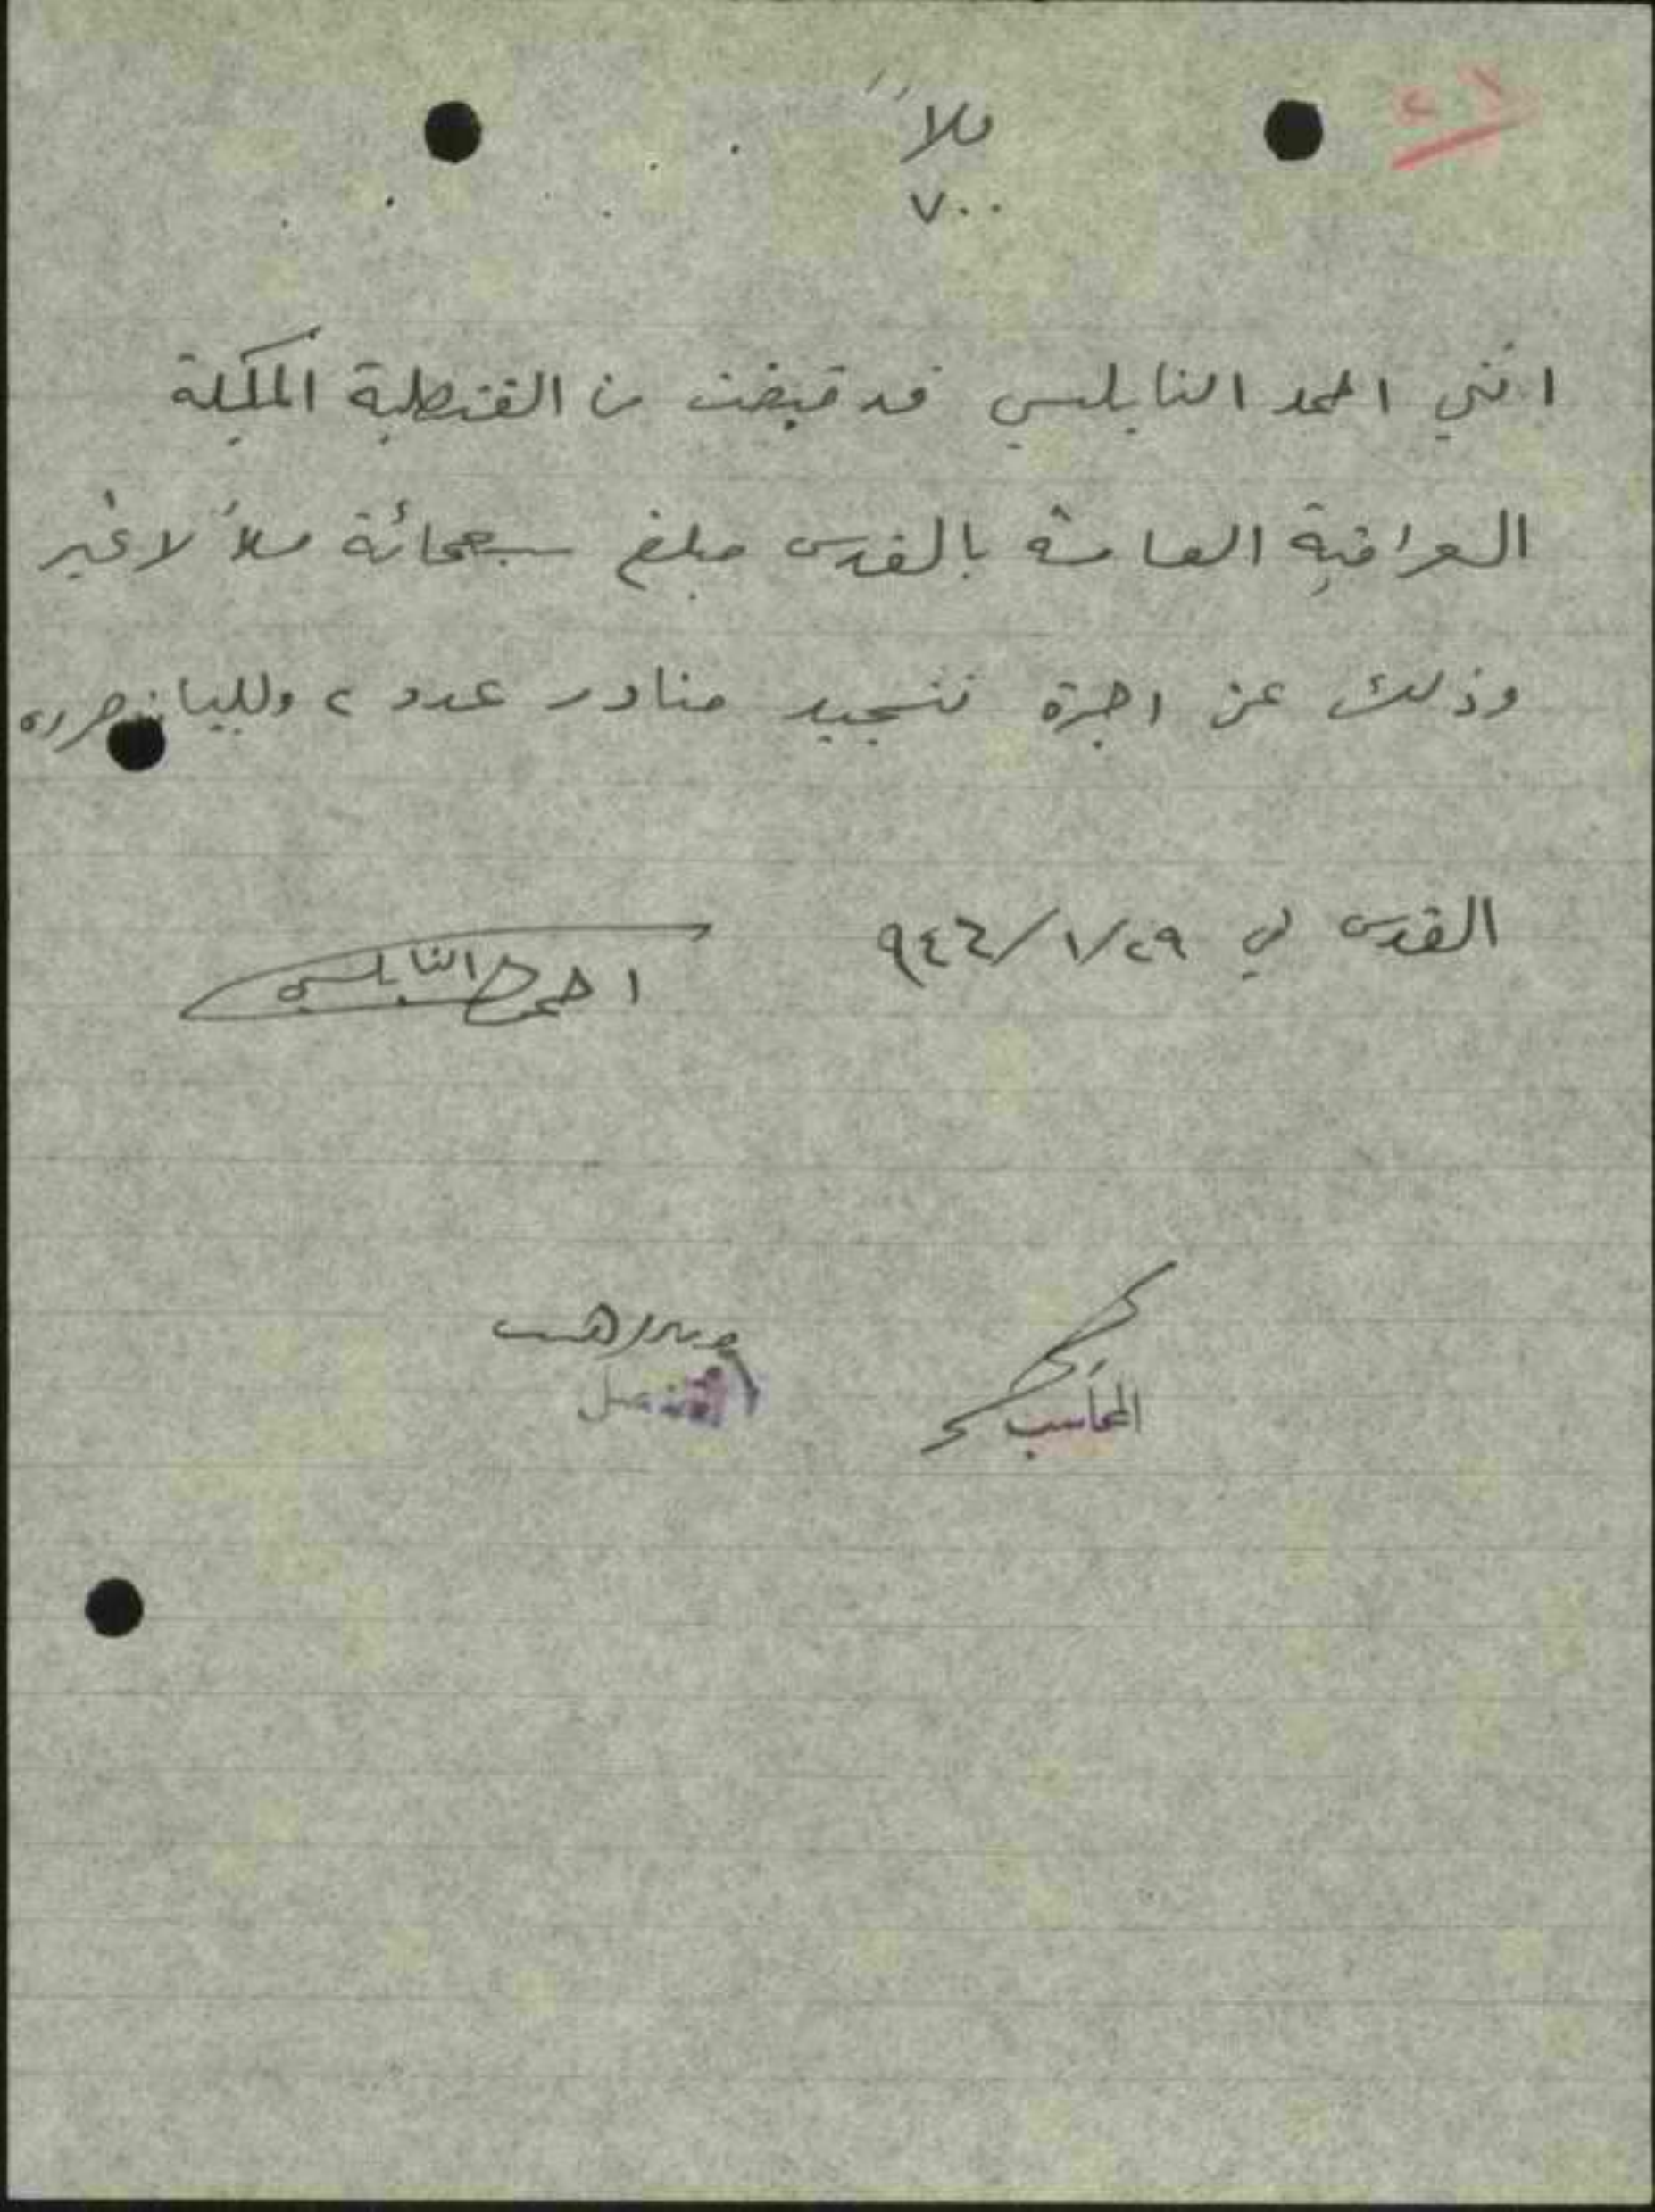 ٢١
ملا
٧٠٠
انني احمد النابلسي قد قبضت من القنصلية الملكية
العراقية العامة بالقدس مبلغ سبعمائة ملاً لا غير
وذلك عن اجرة تنجيد منادر عدد ٢ وللبيان حررت
القدس في ٢٩/١/٩٤٦
احمد النابلسي
المحاسب
القنصل